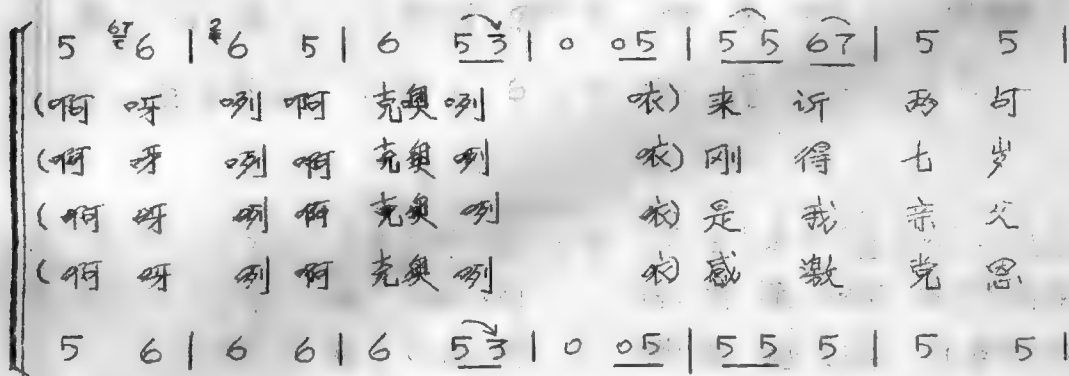 5 6 | 6 5 | 6 5 3 | 0 05 | 5 5 67 | 5 5 |
(啊 呀 咧 啊 克奥 咧 咴) 来 诉 两 句
(啊 呀 咧 啊 克奥 咧 咴) 刚 得 七 岁
(啊 呀 咧 啊 克奥 咧 咴) 是 我 亲 父
(啊 呀 咧 啊 克奥 咧 咴) 感 激 党 恩
5 6 | 6 6 | 6 5 3 | 0 05 | 5 5 5 | 5 5 |